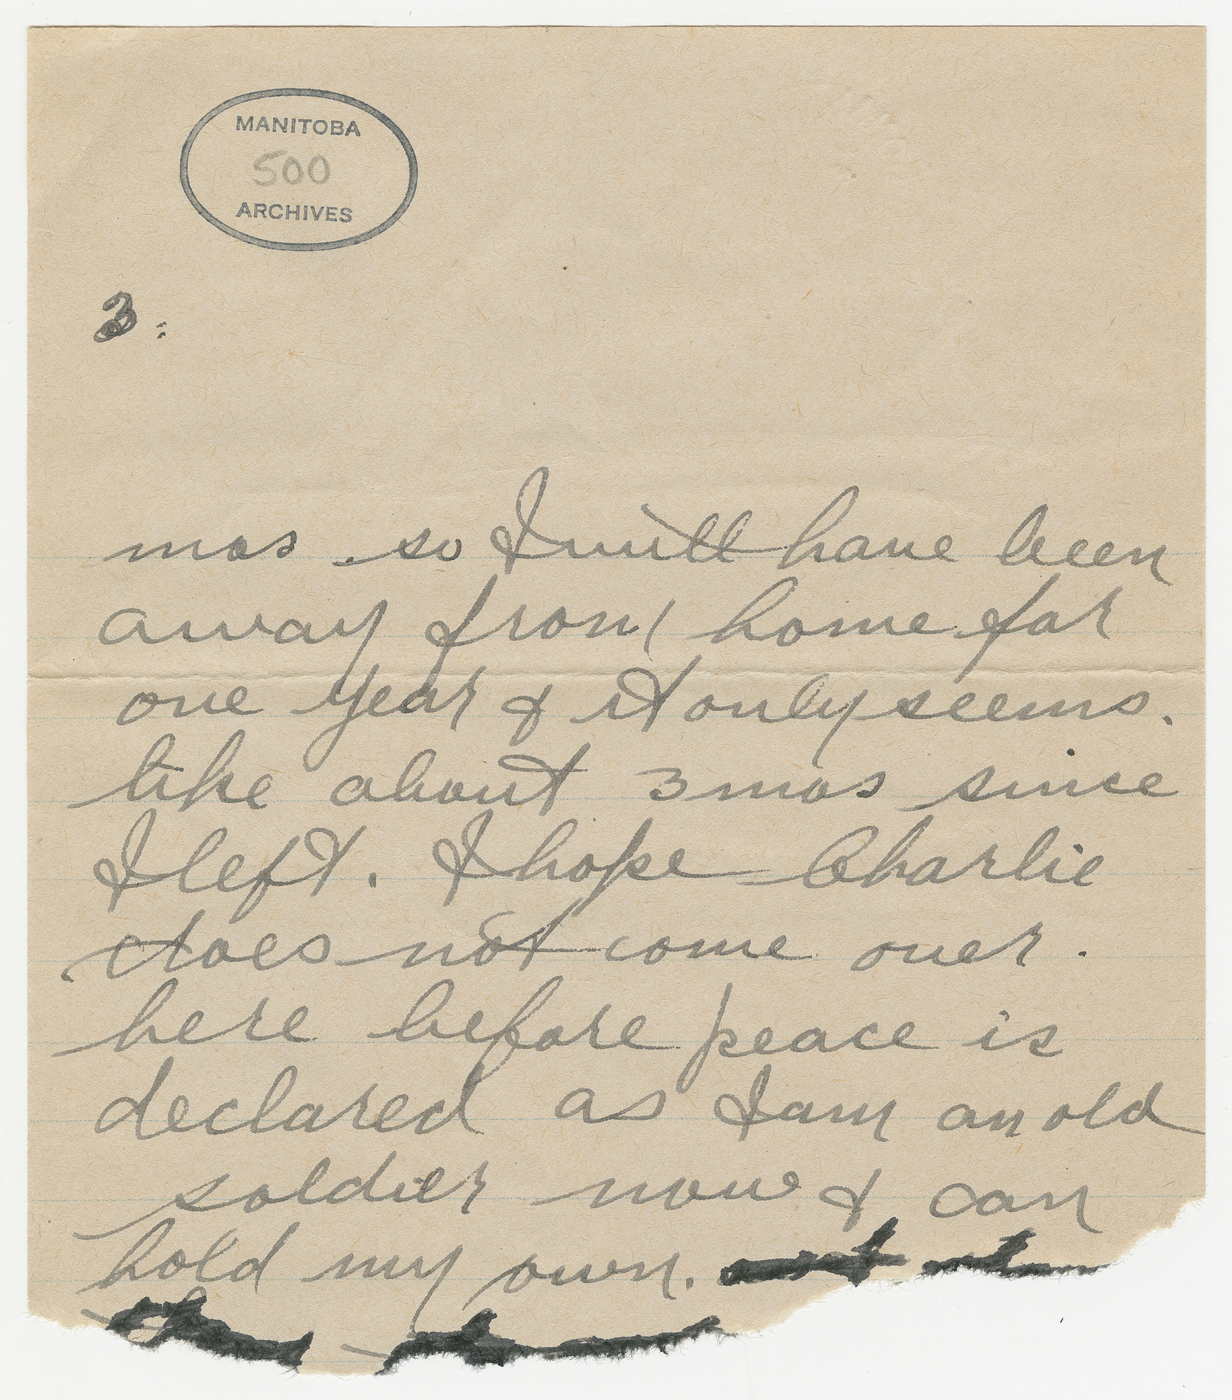 MANITOBA
500
ARCHIVES
3.
mos . so I will have been
away from home for
one year & it only seems.
like about 3 mos since
I left. I hope Charlie
does not come over .
here before peace is
declared as I am an old
soldier now & can
hold my own.